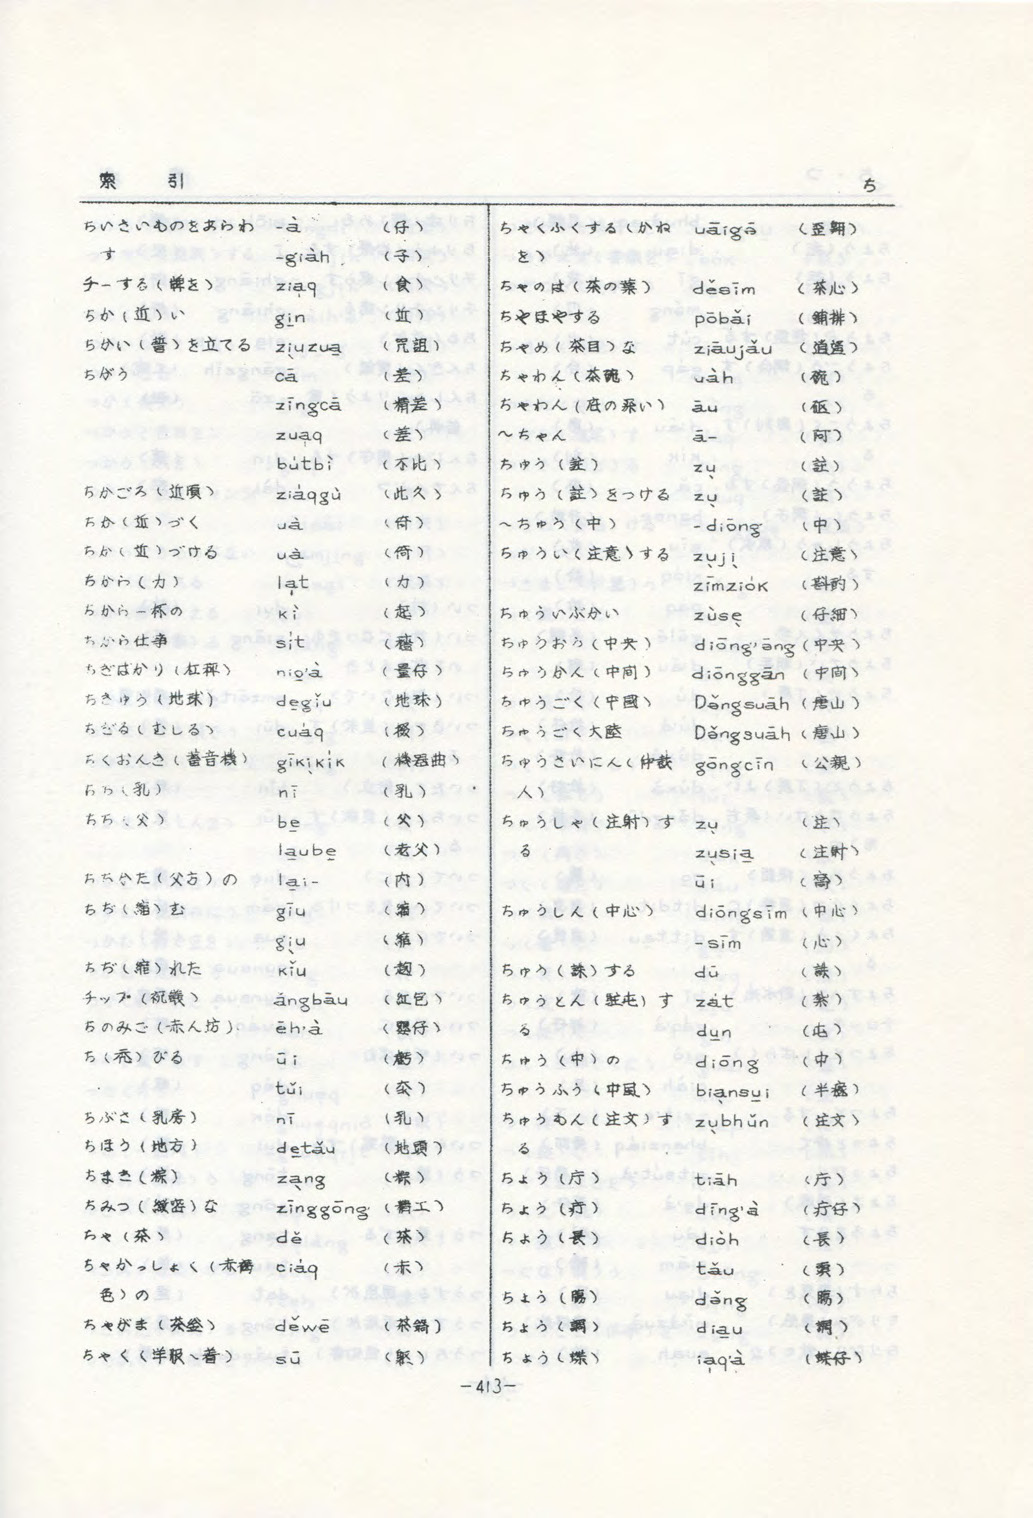 索引
ち
ちいさいものをあらわ -à (仔)
す -giàh (子)
チーする(牌を) ziaq (食)
ちか(近)い gin (近)
ちかい(誓)を立てる ziuzua (咒詛)
ちがう cā (差)
zīngcā (精差)
zuaq (差)
bútbì (不比)
ちかごろ(近頃) ziáqgù (此久)
ちか(近)づく uà (倚)
ちか(近)づける uà (倚)
ちから(力) lat (力)
ちから一杯の kì (起)
ちから仕事 sit (穡)
ちぎばかり(杠秤) nio'à (量仔)
ちきゅう(地球) degǐu (地球)
ちぎる(むしる) cuáq
ちくおんき(蓄音機) gīkikìk (機器曲)
ちち(乳) nī (乳)
ちち(父) be (父)
laube (老父)
ちちかた(父方)の lai- (内)
ちぢ(縮)む gīu (縮)
giu (縮)
ちぢ(縮)れた kǐu
チップ(祝儀) ángbāu (紅包)
ちのみご(赤ん坊) ēh'à (嬰仔)
ち(禿)びる ūi (虧)
tǔi
ちぶさ(乳房) nī (乳)
ちほう(地方) detǎu (地頭)
ちまき(粽) zang (粽)
ちみつ(緻密)な zīnggōng (精工)
ちゃ(茶) dě (茶)
ちゃかっしょく(赤褐 ciáq (赤)
色)の
ちゃがま(茶釜) děwē (茶鍋)
ちゃく(洋服〜着) sū (躯)
ちゃくふくする(かね uāigē (歪翱)
を)
ちゃのは(茶の葉) děsīm (茶心)
ちやほやする pōbǎi (鋪排)
ちゃめ(茶目)な ziāujǎu
ちゃわん(茶碗) uàh (碗)
ちゃわん(底の深い) āu (甌)
〜ちゃん ā- (阿)
ちゅう(註) zu (註)
ちゅう(註)をつける zu (註)
〜ちゅう(中) -diōng (中)
ちゅうい(注意)する zuji (注意)
zīmziók (斟酌)
ちゅういぶかい zùse (仔細)
ちゅうおう(中央) diōng'āng (中央)
ちゅうかん(中間) diōnggān (中間)
ちゅうごく(中國) Děngsuāh (唐山)
ちゅうごく大陸 Děngsuāh (唐山)
ちゅうさいにん(仲裁 gōngcīn (公親)
人)
ちゅうしゃ(注射)す zu (注)
る zusia (注射)
ūi
ちゅうしん(中心) diōngsīm (中心)
-sīm (心)
ちゅう(誅)する dū (誅)
ちゅうとん(駐屯)す zát (紮)
る dun (屯)
ちゅう(中)の diōng (中)
ちゅうふう(中風) biansui
ちゅうもん(注文)す zubhǔn (注文)
る
ちょう(庁) tiāh (庁)
ちょう(疔) dīng'à (疔仔)
ちょう(長) diòh (長)
tǎu (頭)
ちょう(腸) děng (腸)
ちょう(調) diau (調)
ちょう(蝶) iaq'à (蝶仔)
-413-